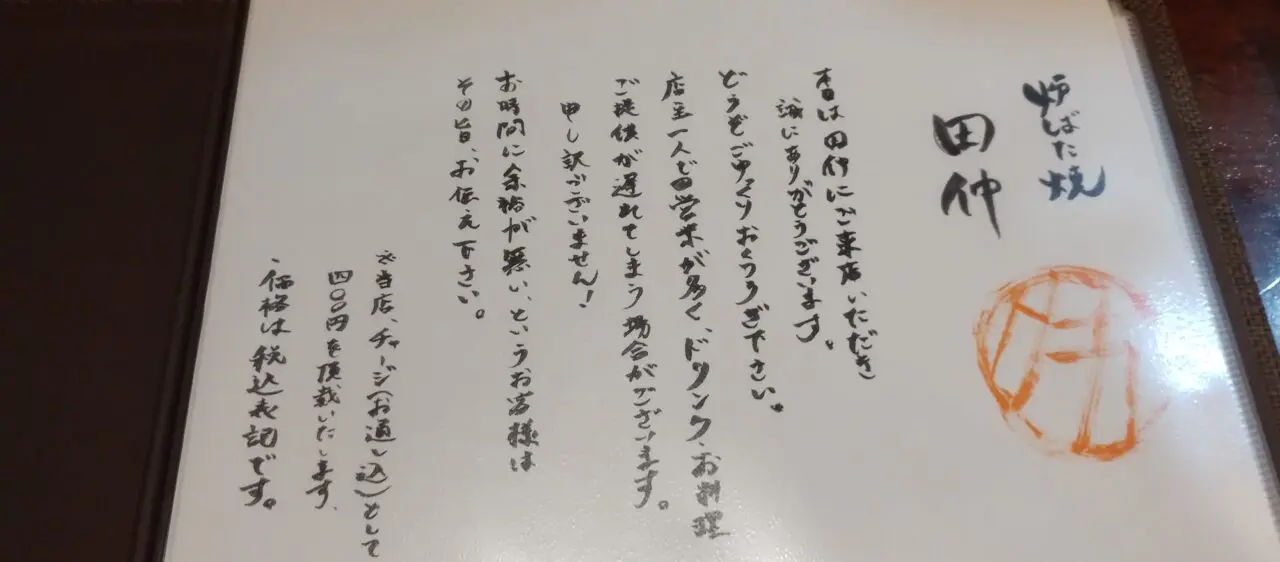 炉ばた焼
田仲
本日は田仲にご来店いただき
誠にありがとうございます。
どうぞごゆっくりおくつろぎ下さい。
店主一人での営業が多く、ドリンク、お料理
ご提供が遅れてしまう場合がございます。
申し訳ございません!
お時間に余裕が無い、というお客様は
その旨、お伝え下さい。
※当店、チャージ(お通し込)として
四〇〇円を頂戴いたします、
・価格は税込表記です。